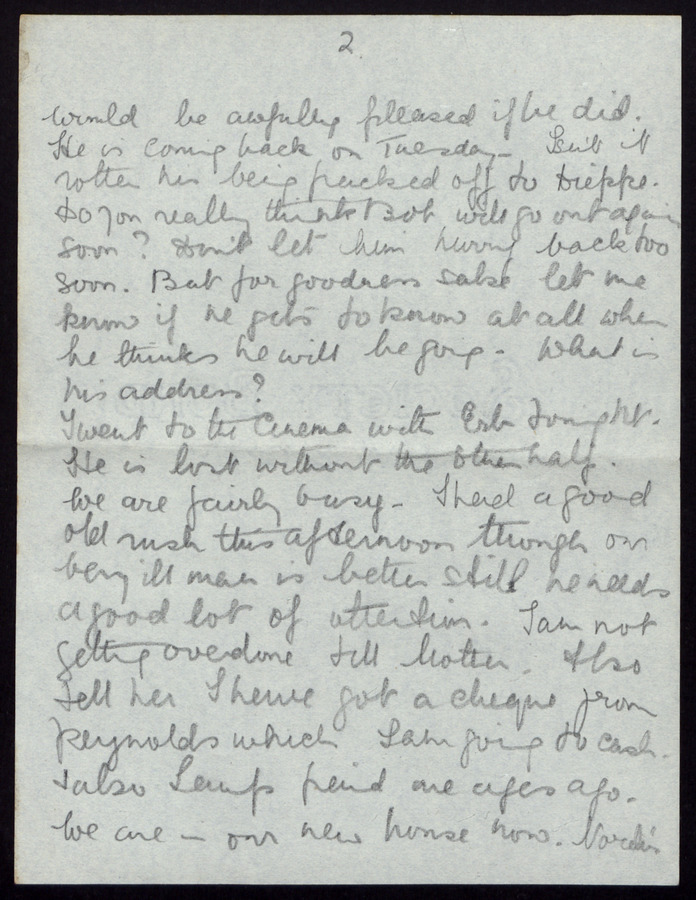 2.
would be awfully pleased if he did.
He is coming back on Tuesday - Isn't it
rotten his being packed off to Dieppe.
Do you really think Bob will go out again
soon? Don't let him hurry back too
soon. But for goodness sake let me
know if he gets to know at all when
he thinks he will be going. What is
his address?
I went to the Cinema with Erb tonight.
He is lost without the other half.
We are fairly busy - I had a good
old rush this afternoon though our
very ill man is better still he needs
a good lot of attention. I am not
getting overdone tell Mother. Also
tell her I have got a cheque from
Reynolds which I am going to cash.
& also paid me ages ago.
We are - our new house now.